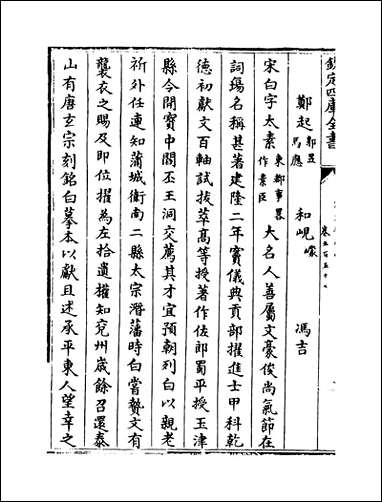 欽定四庫全書
鄭起 郭昱 馬應 和峴 㠓 馮吉
宋白字太素 東都事畧作素臣 大名人善屬文豪俊尚氣節在
詞場名稱甚著建隆二年竇儀典貢部擢進士甲科乾
德初獻文百軸試拔萃髙等授著作佐郎蜀平授玉津
縣令開寶中閻丕王洞交薦其才宜預朝列白以親老
祈外任連知蒲城衛南二縣太宗潛藩時白嘗贄文有
襲衣之賜及即位擢為左拾遺權知兗州歲餘召還泰
山有唐玄宗刻銘白摹本以獻且述承平東人望幸之